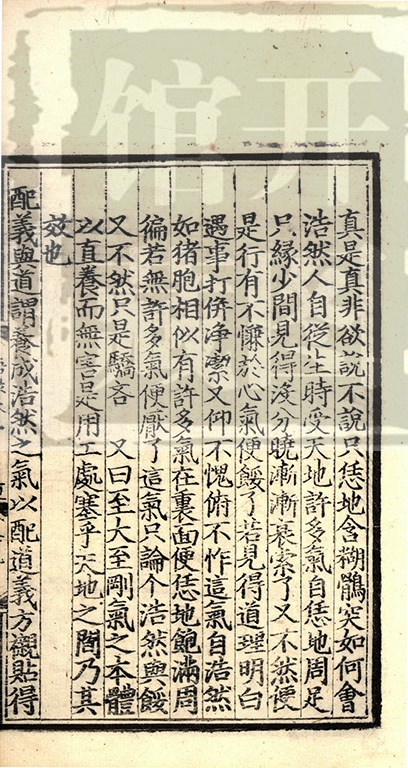 真是真非欲說不說只恁地含糊鶻突如何會
浩然人自從生時受天地許多氣自恁地周足
只緣少間見得淺分曉漸漸衰索了又不然便
是行有不慊於心氣便餒了若見得道理明白
遇事打倂淨潔又仰不愧俯不怍這氣自浩然
如猪胞相似有許多氣在裏面便恁地飽滿周
徧若無許多氣便厭了這氣只論个浩然與餒
又不然只是驕吝 又曰至大至剛氣之本體
以直養而無害是用工處塞乎天地之間乃其
效也
配義與道謂養成浩然之氣以配道義方襯貼得